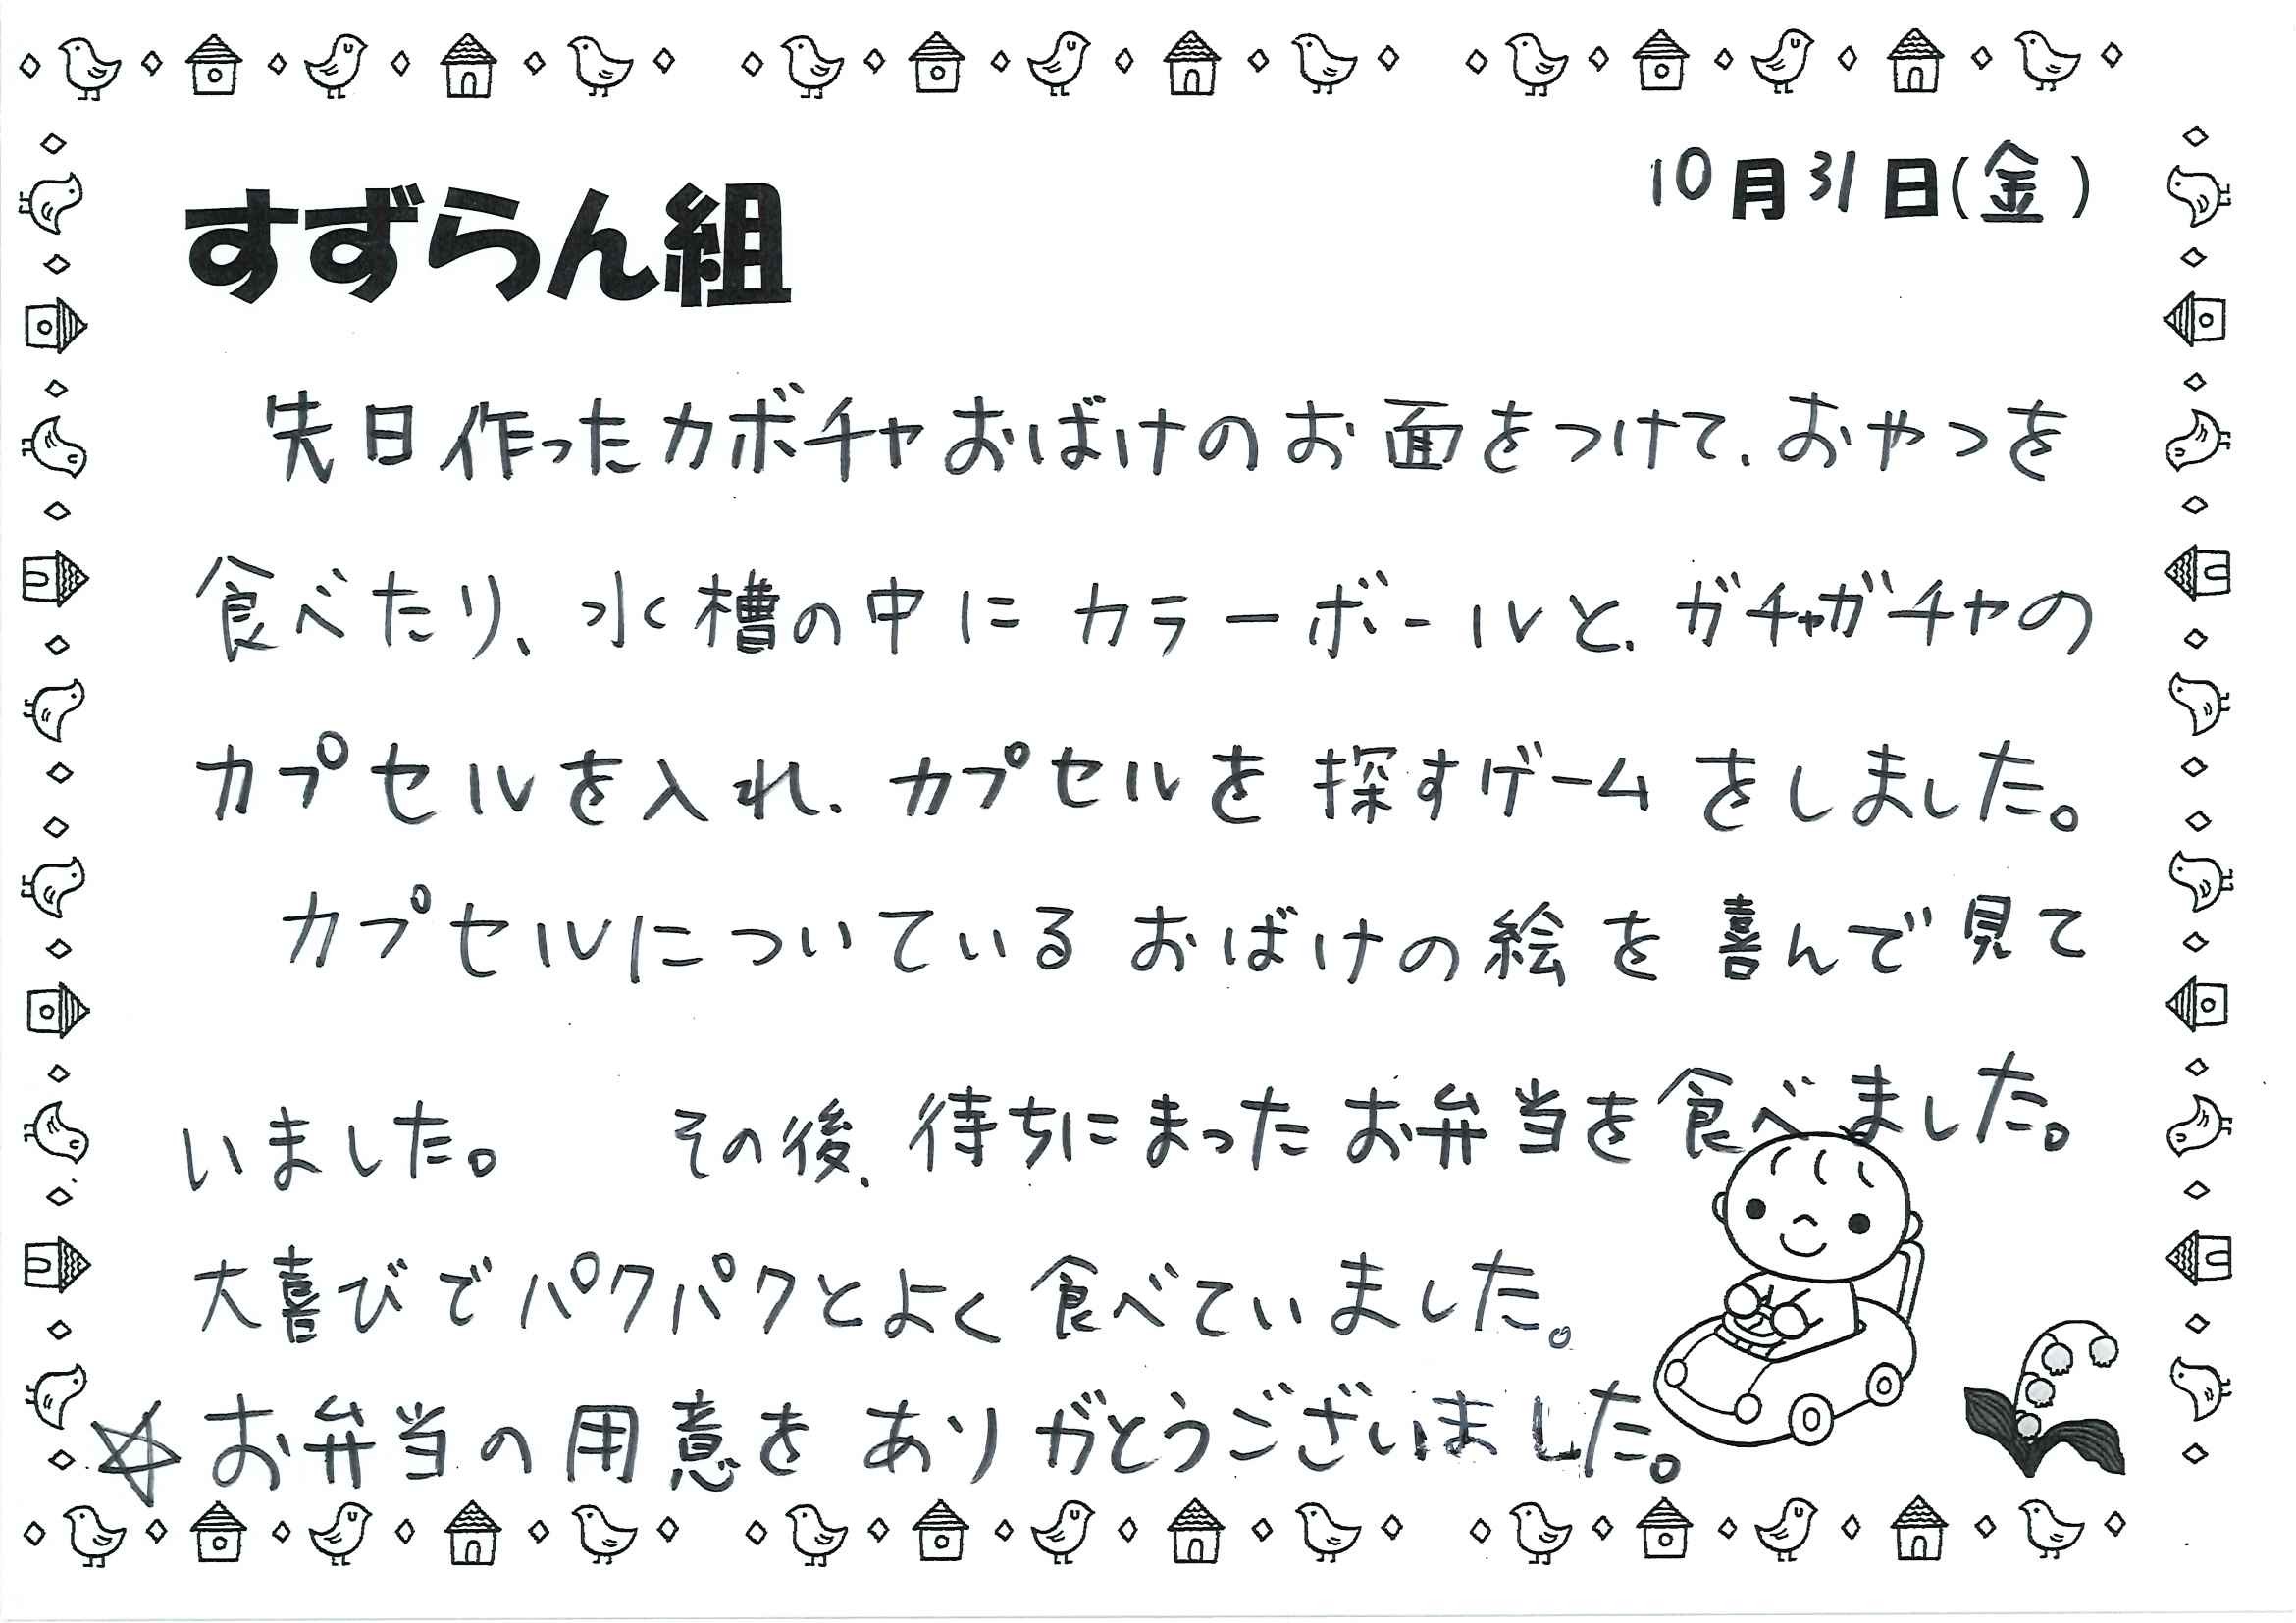 10月31日(金)
すずらん組
先日作ったカボチャおばけのお面をつけて、おやつを
食べたり、水槽の中にカラーボールと、ガチャガチャの
カプセルを入れ、カプセルを探すゲームをしました。
カプセルについているおばけの絵を喜んで見て
いました。 その後、待ちにまったお弁当を食べました。
大喜びでパクパクとよく食べていました。
☆お弁当の用意をありがとうございました。